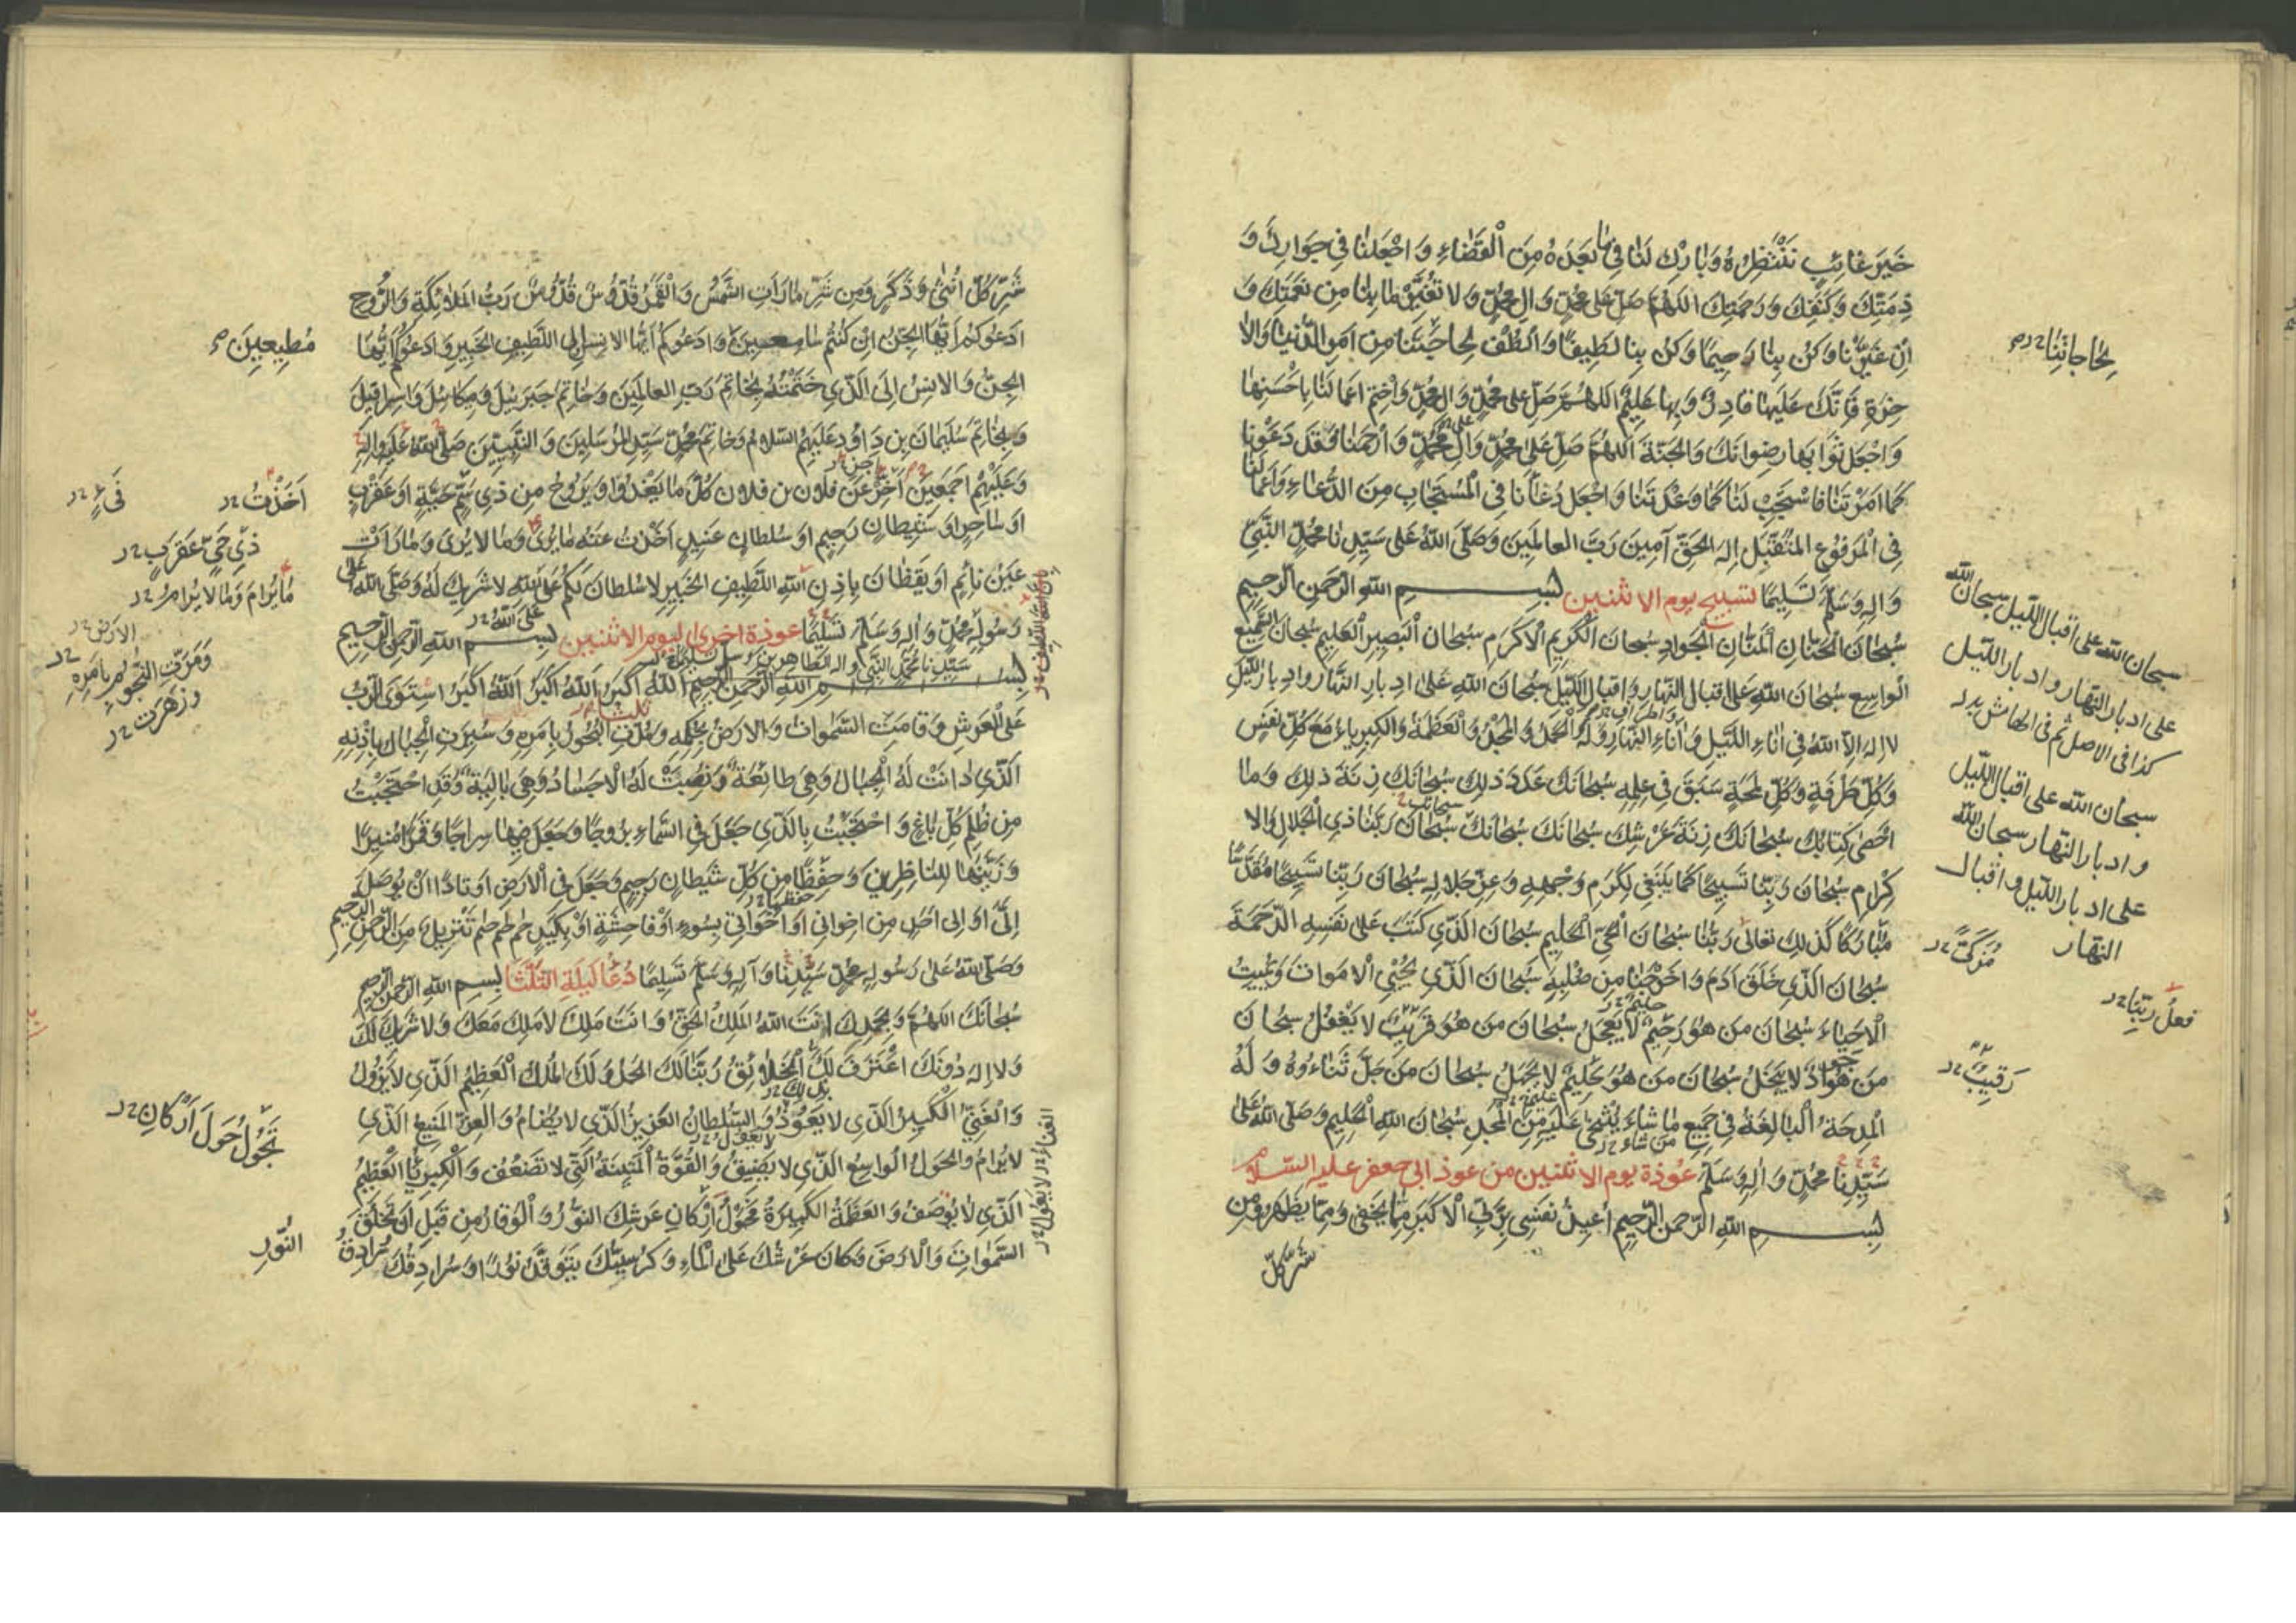 خَيْرَ غَائِبٍ نَنْتَظِرُهُ وَبَارِكْ لَنَا فِي مَا بَعْدَهُ مِنَ الْقَضَاءِ وَاجْعَلْنَا فِي جِوَارِكَ وَ
ذِمَّتِكَ وَكَنَفِكَ وَرَحْمَتِكَ اللهُمَّ صَلِّ عَلى مُحَمَّدٍ وَالِ مُحَمَّدٍ وَلا تُغَيِّرْ مَا بِنَا مِن نِعْمَتِكَ وَ
اِنْ غَيَّرْنَا وَكُنْ بِنَا رَحِيمًا وَكُنْ بِنَا لَطِيفًا وَالْطُفْ لِحَاجَتِنَا مِنْ اَمْرِ الدُّنْيَا وَالْاٰ
خِرَةِ فَاِنَّكَ عَلَيْهَا قَادِرٌ وَبِهَا عَلِيمٌ اللهُمَّ صَلِّ عَلى مُحَمَّدٍ وَالِ مُحَمَّدٍ وَاخْتِمْ اَعْمَالَنَا بِاَحْسَنِهَا
وَاجْعَلْ ثَوَابَهَا رِضْوَانَكَ وَالْجَنَّةَ اللهُمَّ صَلِّ عَلى مُحَمَّدٍ وَالِ مُحَمَّدٍ وَارْحَمْنَا فَقَدْ دَعَوْنَا
كَمَا اَمَرْتَنَا فَاسْتَجِبْ لَنَا كَمَا وَعَدْتَنَا وَاجْعَلْ دُعَاءَنَا فِي الْمُسْتَجَابِ مِنَ الدُّعَاءِ وَاَعْمَالَنَا
فِي الْمَرْفُوعِ الْمُتَقَبَّلِ اِلهَ الْحَقِّ آمِينَ رَبَّ الْعَالَمِينَ وَصَلَّى اللهُ عَلى سَيِّدِنَا مُحَمَّدٍ النَّبِيِّ
وَالِهِ وَسَلَّمَ تَسْلِيمًا تسبيح يوم الاثنين بسم الله الرحمن الرحيم
سُبْحَانَ الْحَنَّانِ الْمَنَّانِ الْجَوَادِ سُبْحَانَ الْكَرِيمِ الْاَكْرَمِ سُبْحَانَ الْبَصِيرِ الْعَلِيمِ سُبْحَانَ السَّمِيعِ
الْوَاسِعِ سُبْحَانَ اللهِ عَلى اِقْبَالِ النَّهَارِ وَاِقْبَالِ اللَّيْلِ سُبْحَانَ اللهِ عَلى اِدْبَارِ النَّهَارِ وَادْبَارِ اللَّيْلِ
لا اِلهَ اِلّا اللهُ فِي انَاءِ اللَّيْلِ وَانَاءِ النَّهَارِ وَلَهُ الْحَمْدُ وَالْمَجْدُ وَالْعَظَمَةُ وَالْكِبْرِيَاءُ مَعَ كُلِّ نَفَسٍ
وَكُلِّ طَرْفَةٍ وَكُلِّ لَمْحَةٍ سَبَقَ فِي عِلْمِهِ سُبْحَانَكَ عَدَدَ ذلِكَ سُبْحَانَكَ زِنَةَ ذلِكَ وَمَا
اَحْصى كِتَابُكَ سُبْحَانَكَ زِنَةَ عَرْشِكَ سُبْحَانَكَ سُبْحَانَكَ سُبْحَانَ رَبِّنَا ذِي الْجَلالِ وَالا
كْرَامِ سُبْحَانَ رَبِّنَا تَسْبِيحًا كَمَا يَنْبَغِي لِكَرَمِ وَجْهِهِ وَعِزِّ جَلالِهِ سُبْحَانَ رَبِّنَا تَسْبِيحًا مُقَدَّسًا
مُبَارَكًا كَذلِكَ تَعَالى رَبُّنَا سُبْحَانَ الْحَيِّ الْحَلِيمِ سُبْحَانَ الَّذِي كَتَبَ عَلى نَفْسِهِ الرَّحْمَةَ
سُبْحَانَ الَّذِي خَلَقَ ادَمَ وَاَخْرَجَنَا مِنْ صُلْبِهِ سُبْحَانَ الَّذِي يُحْيِي الْاَمْوَاتَ وَيُمِيتُ
الْاَحْيَاءَ سُبْحَانَ مَنْ هُوَ رَحِيمٌ لا يَعْجَلُ سُبْحَانَ مَنْ هُوَ قَرِيبٌ لا يَغْفُلُ سُبْحَانَ
مَنْ هُوَ جَوَادٌ لا يَبْخَلُ سُبْحَانَ مَنْ هُوَ حَلِيمٌ لا يَجْهَلُ سُبْحَانَ مَنْ جَلَّ ثَنَاءُوهُ وَلَهُ
الْمِدْحَةُ الْبَالِغَةُ فِي جَمِيعِ مَا شَاءَ يُثْنى عَلَيْهِ مِنَ الْمَجْدِ سُبْحَانَ اللهِ الْحَلِيمِ وَصَلَّى اللهُ عَلى
سَيِّدِنَا مُحَمَّدٍ وَالِهِ وَسَلَّمَ عوذة يوم الاثنين من عوذ ابي جعفر عليه السلام
بسم الله الرحمن الرحيم اُعِيذُ نَفْسِي بِرَبِّيَ الْاَكْبَرِ مِمَّا يَخْفى وَمِمَّا يَظْهَرُ وَمِنْ
شَرِّ كُلِّ
لِحَاجَاتِنَا
سبحان الله على اقبال الليل سبحان الله
على ادبار النهار وادبار الليل
كذا في الاصل ثم في الهامش بدل
سبحان الله على اقبال الليل
وادبار النهار سبحان الله
على ادبار الليل واقبال
النهار
فعل ربنا
رَقِيبٌ
شَرِّ كُلِّ اُنْثى وَذَكَرٍ وَمِنْ شَرِّ مَا رَاَتِ الشَّمْسُ وَالْقَمَرُ قُدُّوسٌ قُدُّوسٌ رَبُّ الْمَلائِكَةِ وَالرُّوحِ
اَدْعُوكُمْ اَيُّهَا الْجِنُّ اِنْ كُنْتُمْ سَامِعِينَ وَاَدْعُوكُمْ اَيُّهَا الْاِنْسُ اِلَى اللَّطِيفِ الْخَبِيرِ وَاَدْعُوكُمْ اَيُّهَا
الْجِنُّ وَالْاِنْسُ اِلَى الَّذِي خَتَمْتُهُ بِخَاتَمِ رَبِّ الْعَالَمِينَ وَخَاتَمِ جَبْرَئِيلَ وَمِيكَائِيلَ وَاِسْرَافِيلَ
وَبِخَاتَمِ سُلَيْمَانَ بْنِ دَاوُدَ عَلَيْهِمُ السَّلامُ وَخَاتَمِ مُحَمَّدٍ سَيِّدِ الْمُرْسَلِينَ وَالنَّبِيِّينَ صَلَّى اللهُ عَلَيْهِ وَالِهِ
وَعَلَيْهِمْ اَجْمَعِينَ اَخِّرْ عَنْ فلان بن فلان كُلَّ مَا يَغْدُوا وَيَرُوحُ مِنْ ذِي سَمٍّ حَيَّةٍ اَوْ عَقْرَبٍ
اَوْ سَاحِرٍ اَوْ شَيْطَانٍ رَجِيمٍ اَوْ سُلْطَانٍ عَنِيدٍ اَخَذْتُ عَنْهُ مَا يُرى وَمَا لا يُرى وَمَا رَاَتْ
عَيْنُ نَائِمٍ اَوْ يَقْظَانَ بِاِذْنِ اللهِ اللَّطِيفِ الْخَبِيرِ لا سُلْطَانَ لَكُمْ عَلَى اللهِ لا شَرِيكَ لَهُ وَصَلَّى اللهُ عَلى
رَسُولِهِ مُحَمَّدٍ وَالِهِ وَسَلَّمَ تَسْلِيمًا عوذة اخرى ليوم الاثنين بسم الله الرحمن الرحيم
بسم الله الرحمن الرحيم اَللهُ اَكْبَرُ اَللهُ اَكْبَرُ اَللهُ اَكْبَرُ اسْتَوَى الرَّبُّ
عَلَى الْعَرْشِ وَقَامَتِ السَّمٰوَاتُ وَالْاَرْضُ بِحُكْمِهِ وَمُدَّتِ الْبُحُورُ بِاَمْرِهِ وَسُيِّرَتِ الْجِبَالُ بِاِذْنِهِ
الَّذِي دَانَتْ لَهُ الْجِبَالُ وَهِيَ طَائِعَةٌ وَنُصِبَتْ لَهُ الْاَجْسَادُ وَهِيَ بَالِيَةٌ وَقَدِ احْتَجَبْتُ
مِنْ ظُلْمِ كُلِّ بَاغٍ وَاحْتَجَبْتُ بِالَّذِي جَعَلَ فِي السَّمَاءِ بُرُوجًا وَجَعَلَ فِيهَا سِرَاجًا وَقَمَرًا مُنِيرًا
وَزَيَّنَهَا لِلنَّاظِرِينَ وَحِفْظًا مِنْ كُلِّ شَيْطَانٍ رَجِيمٍ وَجَعَلَ فِي الْاَرْضِ اَوْتَادًا اَنْ يُوصَلَ
اِلَيَّ اَوْ اِلى اَحَدٍ مِنْ اِخْوَانِي اَوْ اَخَوَاتِي بِسُوءٍ اَوْ فَاحِشَةٍ اَوْ بِكَيْدٍ حم حم حم تَنْزِيلٌ مِنَ الرَّحْمنِ الرَّحِيمِ
وَصَلَّى اللهُ عَلى رَسُولِهِ مُحَمَّدٍ سَيِّدِنَا وَآلِهِ وَسَلَّمَ تَسْلِيمًا دُعَا لَيلَةِ الثلثا بسم الله الرحمن الرحيم
سُبْحَانَكَ اللهُمَّ وَبِحَمْدِكَ اَنْتَ اللهُ الْمَلِكُ الْحَقُّ وَاَنْتَ مَلِكٌ لا مَلِكَ مَعَكَ وَلا شَرِيكَ لَكَ
وَلا اِلهَ دُونَكَ اعْتَرَفَ لَكَ الْخَلائِقُ رَبَّنَا لَكَ الْحَمْدُ وَلَكَ الْمُلْكُ الْعَظِيمُ الَّذِي لا يَزُولُ
وَالْغَنِيُّ الْكَبِيرُ الَّذِي لا يَعُوذُ وَالسُّلْطَانُ الْعَزِيزُ الَّذِي لا يُضَامُ وَالْعِزُّ الْمَنِيعُ الَّذِي
لا يُرَامُ وَالْحَوْلُ الْوَاسِعُ الَّذِي لا يَضِيقُ وَالْقُوَّةُ الْمَتِينَةُ الَّتِي لا تَضْعُفُ وَالْكِبْرِيَاءُ الْعَظِيمُ
الَّذِي لا يُوصَفُ وَالْعَظَمَةُ الْكَبِيرَةُ فَحَوْلَ اَرْكَانِ عَرْشِكَ النُّورُ وَالْوَقَارُ مِنْ قَبْلِ اَنْ تَخْلُقَ
السَّمٰوَاتِ وَالْاَرْضَ وَكَانَ عَرْشُكَ عَلَى الْمَاءِ وَكُرْسِيُّكَ يَتَوَقَّدُ نُورًا وَسُرَادِقُكَ سُرَادِقُ
مُطِيعِينَ
اَخَذْتُ
مَا يُرَامُ وَمَا لا يُرَامُ
الارض
تَجُولُ حَوْلَ اَرْكَانِ
النُّورِ